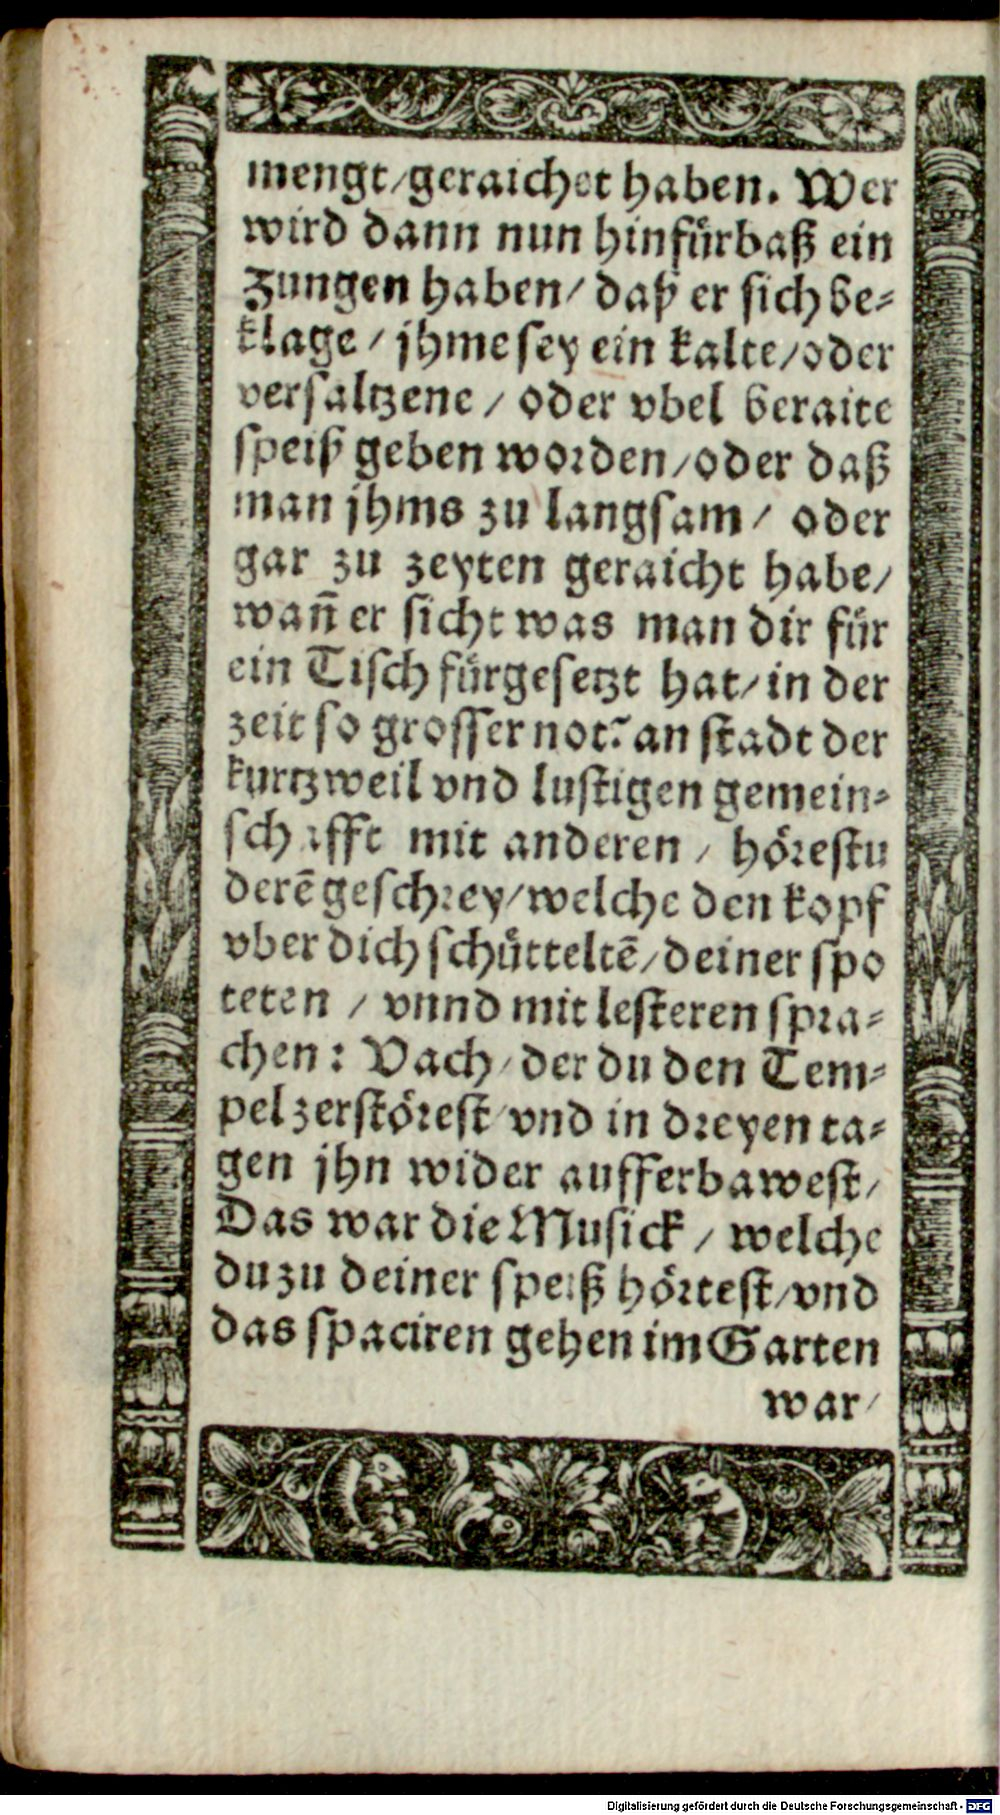 mengt/geraichet haben. Wer
wird dann nun hinfürbaß ein
Zungen haben/ daß er sich be-
klage / jhme sey ein kalte/oder
versaltzene / oder vbel beraite
speiß geben worden/oder daß
man jhms zu langsam / oder
gar zu zeyten geraicht habe/
wañ er sicht was man dir für
ein Tisch fürgesetzt hat/ in der
zeit so grosser not? an stadt der
kurtzweil vnd lustigen gemein-
schafft mit anderen / hörestu
derē geschrey/welche den kopf
vber dich schütteltē/deiner spo
teten / vnnd mit lesteren spra-
chen: Vach/ der du den Tem-
pel zerstörest/ vnd in dreyen ta-
gen jhn wider aufferbawest/
Das war die Musick / welche
du zu deiner speiß hörtest/vnd
das spaciren gehen im Garten
war/
Digitalisierung gefördert durch die Deutsche Forschungsgemeinschaft - DFG